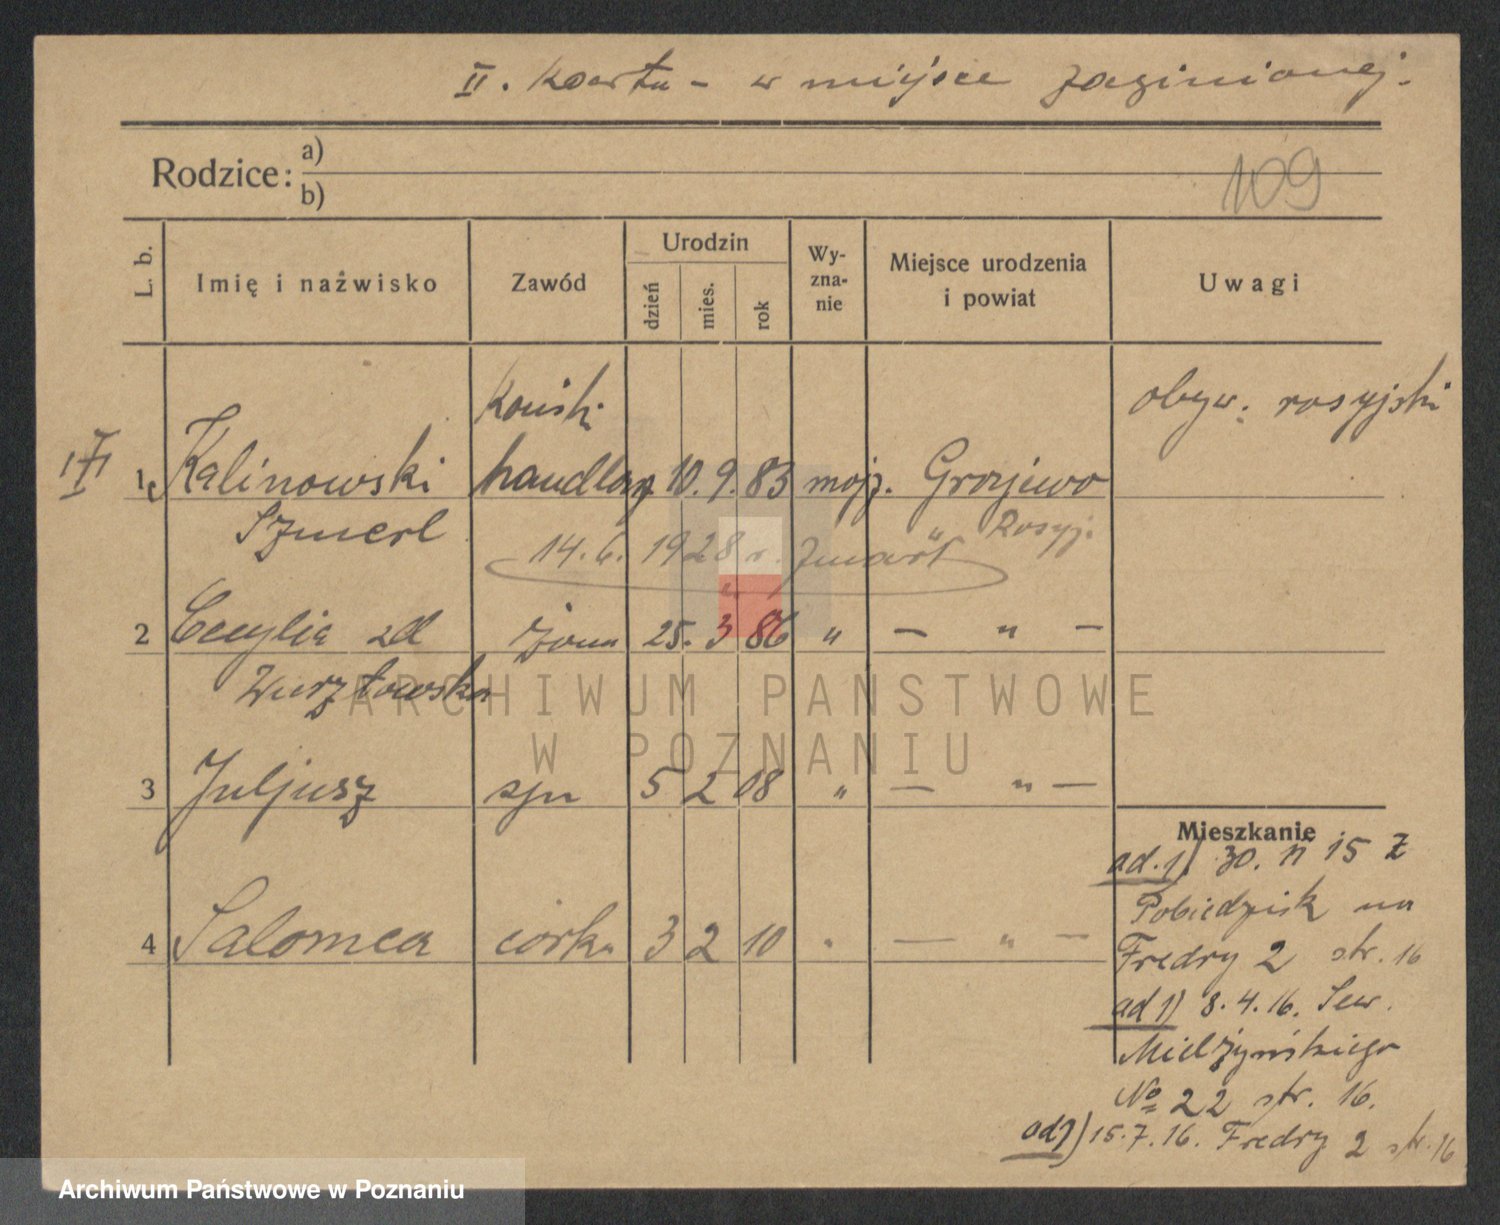 II. Karta - w miejsce zaginionej.
Rodzice:
a)
b)
109
L. b.
Imię i nazwisko
Zawód
Urodzin
dzień
mies.
rok
Wy-
zna-
nie
Miejsce urodzenia
i powiat
Uwagi
obyw. rosyjski
końsk.
1 Kalinowski handlarz 10. 9. 83 mojż. Grajewo
Szmerl " Rosyj.
14. 6. 1928 r. zmarł
2 Cecylia zd żona 25. 3 86 " — " —
3 Juljusz syn 5 2 08 " — " —
4 Salomea córka 3 2 10 " — " —
Mieszkanie
ad. 1) 30. 11 15 z
Pobiedzisk na
Fredry 2 str. 16
ad 1) 8. 4. 16. Sew.
Mielżyńskiego
No 22 str. 16.
ad 1) 15. 7. 16. Fredry 2 str. 16
ARCHIWUM PAŃSTWOWE
W POZNANIU
Archiwum Państwowe w Poznaniu